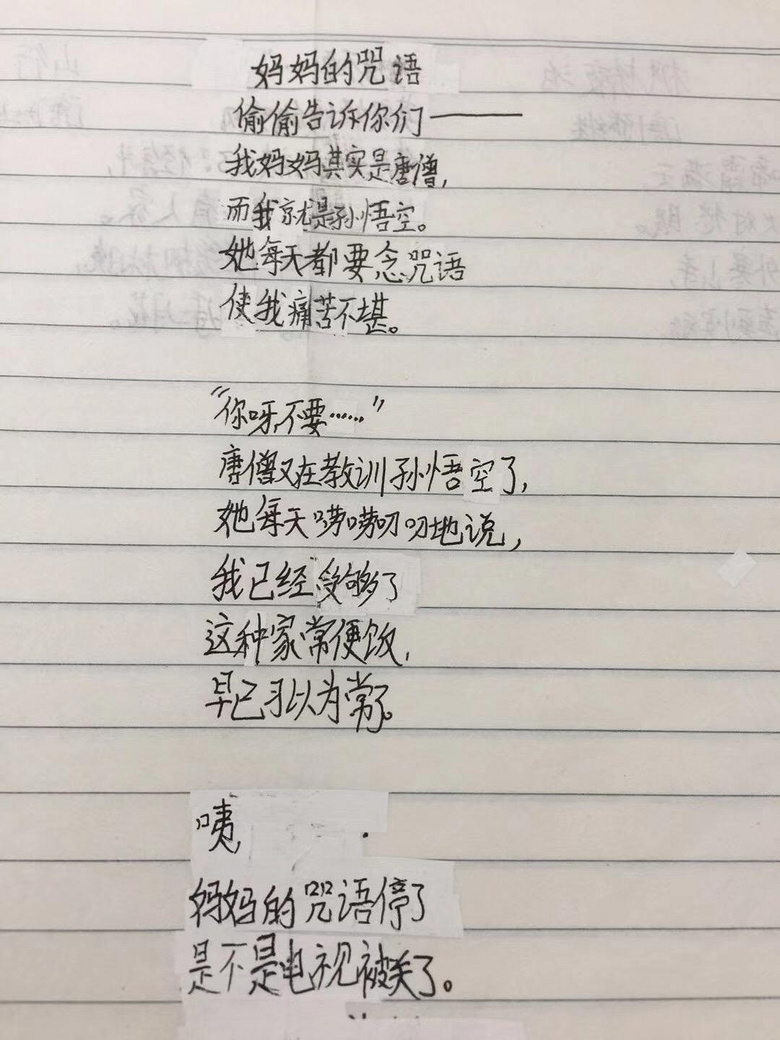 妈妈的咒语
偷偷告诉你们——
我妈妈其实是唐僧,
而我就是孙悟空。
她每天都要念咒语
使我痛苦不堪。
"你呀,不要……"
唐僧又在教训孙悟空了,
她每天唠唠叨叨地说,
我已经受够了
这种家常便饭,
早已习以为常了。
咦,
妈妈的咒语停了
是不是电视被关了。